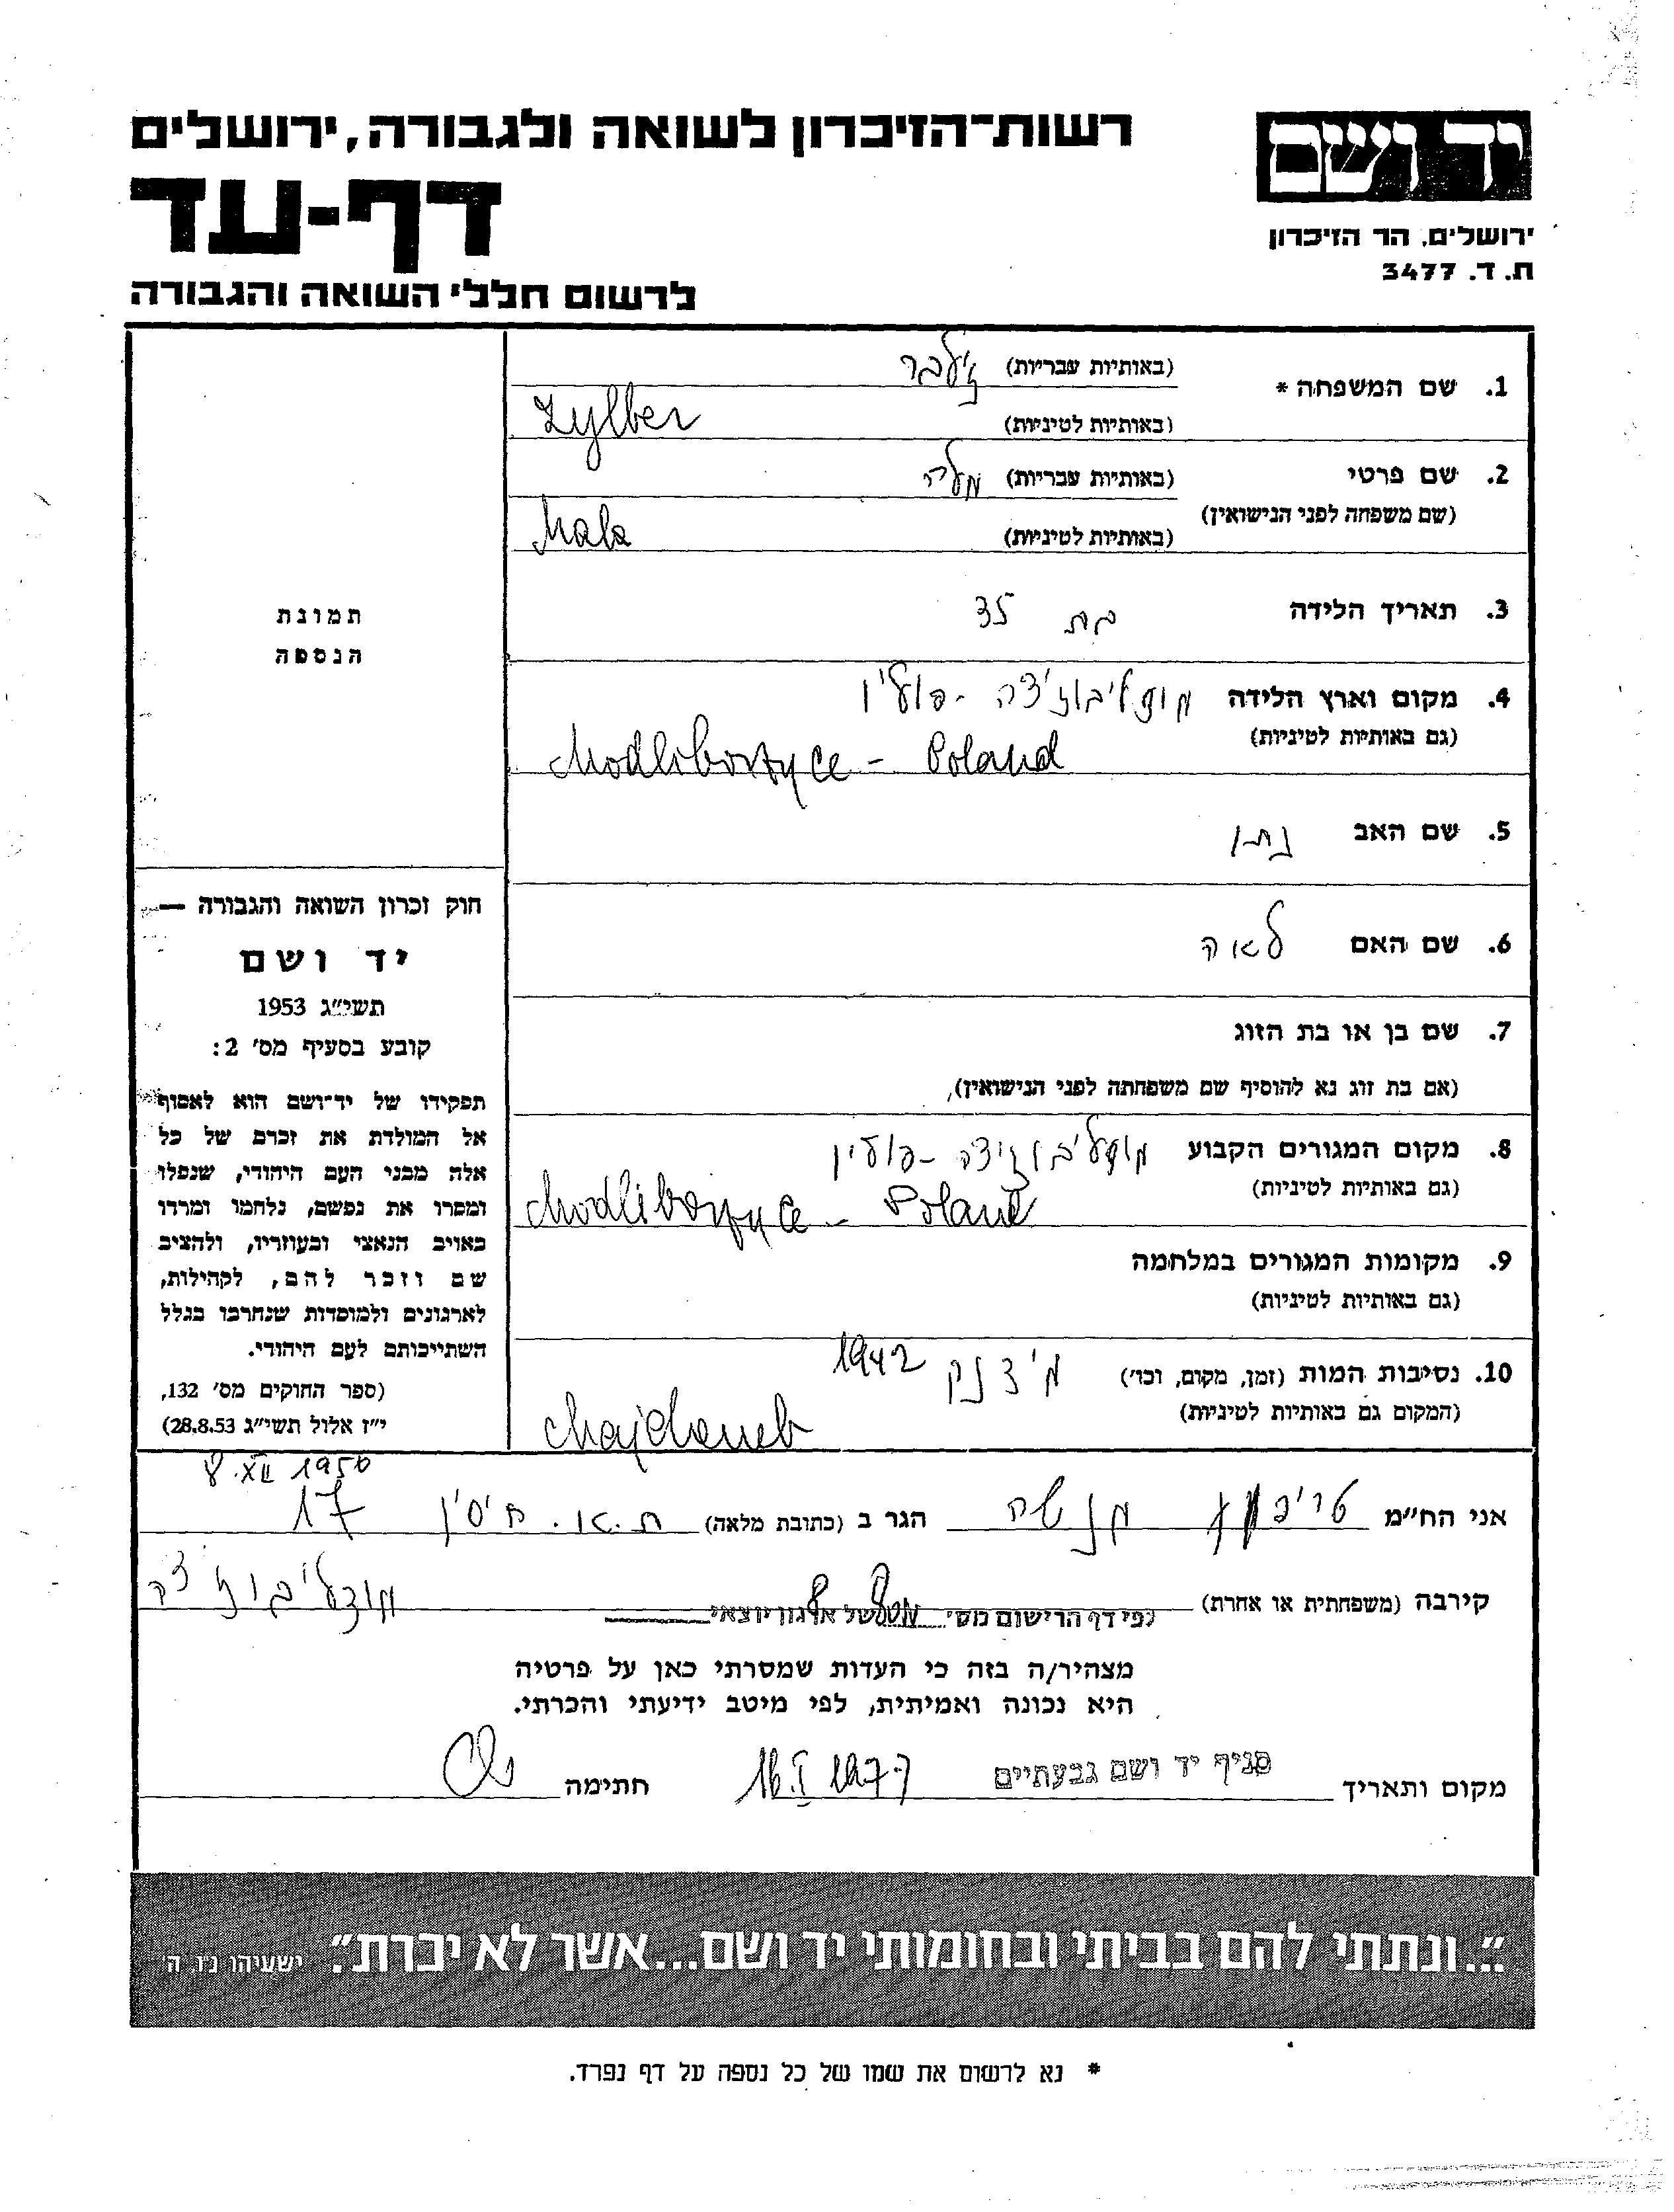 רשות־הזיכרון לשואה ולגבורה, ירושלים
יד ושם
דף-עד
ירושלים, הר הזיכרון
ת. ד. 3477
לרשום חללי השואה והגבורה
1. שם המשפחה * (באותיות עבריות) זילבר
(באותיות לטיניות) Zylber
2. שם פרטי (באותיות עבריות) מלה
(שם משפחה לפני הנישואין)
(באותיות לטיניות) Mala
3. תאריך הלידה בת 35
4. מקום וארץ הלידה מודליבוז'צה - פולין
(גם באותיות לטיניות) Modliborzyce - Poland
5. שם האב נתן
6. שם האם לאה
7. שם בן או בת הזוג
(אם בת זוג נא להוסיף שם משפחתה לפני הנישואין)
8. מקום המגורים הקבוע מודליבוז'צה - פולין
(גם באותיות לטיניות) Modliborzyce - Poland
9. מקומות המגורים במלחמה
(גם באותיות לטיניות)
10. נסיבות המות (זמן, מקום, וכו') 1942
(המקום גם באותיות לטיניות) Majdanek
תמונת
הנספה
חוק זכרון השואה והגבורה —
יד ושם
תשי״ג 1953
קובע בסעיף מס׳ 2:
תפקידו של יד־ושם הוא לאסוף
אל המולדת את זכרם של כל
אלה מבני העם היהודי, שנפלו
ומסרו את נפשם, נלחמו ומרדו
באויב הנאצי ובעוזריו, ולהציב
שם וזכר להם, לקהילות,
לארגונים ולמוסדות שנחרבו בגלל
השתייכותם לעם היהודי.
(ספר החוקים מס׳ 132,
י״ז אלול תשי״ג 28.8.53)
אני הח״מ מנשה הגר ב (כתובת מלאה) ת.א. חיסין 17
קירבה (משפחתית או אחרת) לפי דף הרישום מס׳ של ארגון יוצאי מודליבוז'צה
מצהיר/ה בזה כי העדות שמסרתי כאן על פרטיה
היא נכונה ואמיתית, לפי מיטב ידיעתי והכרתי.
מקום ותאריך סניף יד ושם גבעתיים 16.I 1977 חתימה
״...ונתתי להם בביתי ובחומותי יד ושם...אשר לא יכרת״. ישעיהו נ״ו, ה'
* נא לרשום את שמו של כל נספה על דף נפרד.